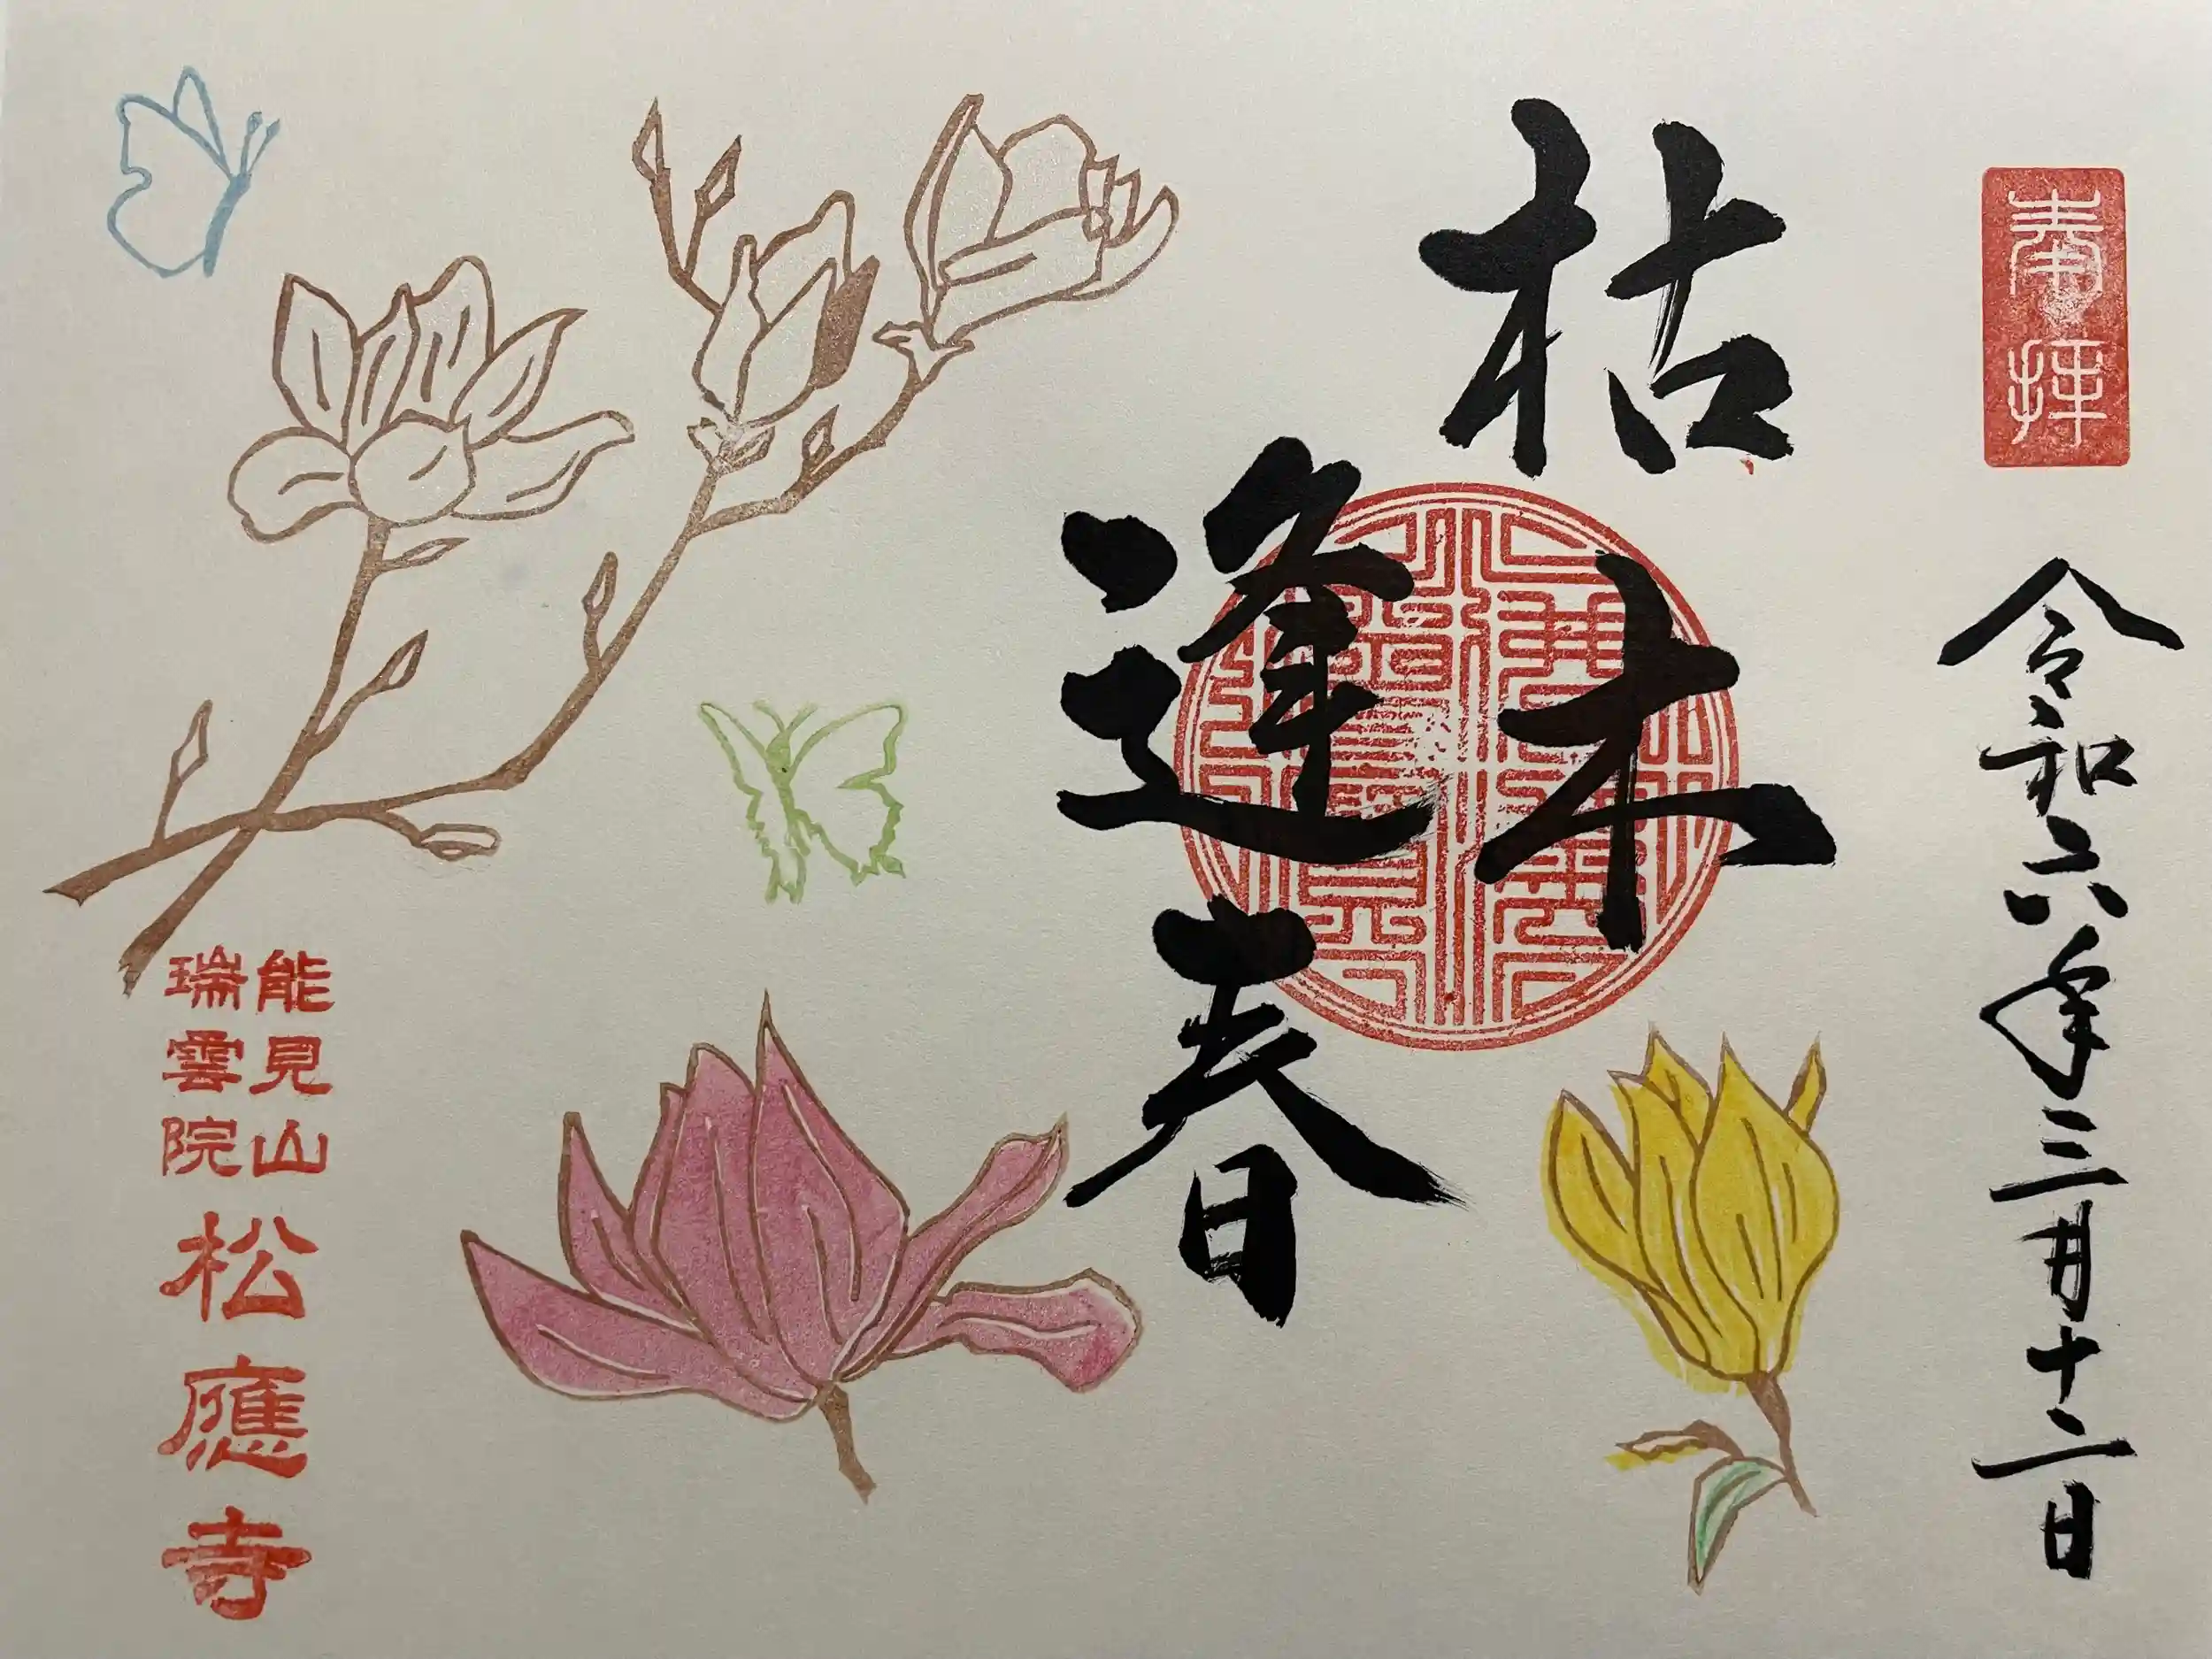 奉拝
令和六年三月十二日
枯木
逢春
能見山
瑞雲院
松應寺